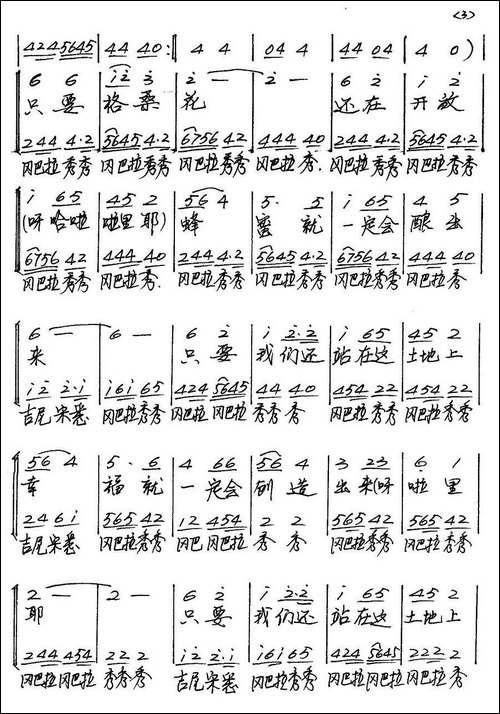 <3>
4245645 44 40: 4 4 04 4 44 04 4 0)
6 6 i2 3 2 — 2 — 6 2 i 2
只要 格桑 花 还在 开放
244 4·2 5645 4·2 6756 42 444 40 244 4·2 5645 4·2
冈巴拉秀秀 冈巴拉秀秀 冈巴拉秀秀 冈巴拉秀. 冈巴拉秀秀 冈巴拉秀秀
i 65 45 2 56 4 5· 5 i 65 4 5
(呀哈啦 啦里耶) 蜂 蜜就 一定会 酿出
6756 42 444 40 244 4·2 5645 4·2 6756 42 444 40
冈巴拉秀秀 冈巴拉秀. 冈巴拉秀秀 冈巴拉秀秀 冈巴拉秀秀 冈巴拉秀
6 — 6 — 6 2 i 2·2 i 65 45 2
来 只要 我们还 站在这 土地上
i2 2·i i6i 65 424 5645 44 40 454 22 454 22
吉尼宋悉 冈巴拉秀秀 冈巴拉冈巴拉 秀秀秀 冈巴拉秀秀 冈巴拉秀秀
56 4 5· 6 4 66 56 4 3 23 6 1
幸 福就 一定会 创造 出来(呀 啦里
24 6i 565 42 12 454 2 2 565 42 565 42
吉尼宋悉 冈巴拉秀秀 冈巴冈巴拉 秀秀 冈巴拉秀秀 冈巴拉秀秀
2 — 2 — 6 2 i 2·2 i 65 45 2
耶 只要 我们还 站在这 土地上
244 454 22 2 i2 2·i i6i 65 424 5645 222 2
冈巴拉冈巴拉 秀秀秀 吉尼宋悉 冈巴拉秀秀 冈巴拉冈巴拉 冈巴拉秀